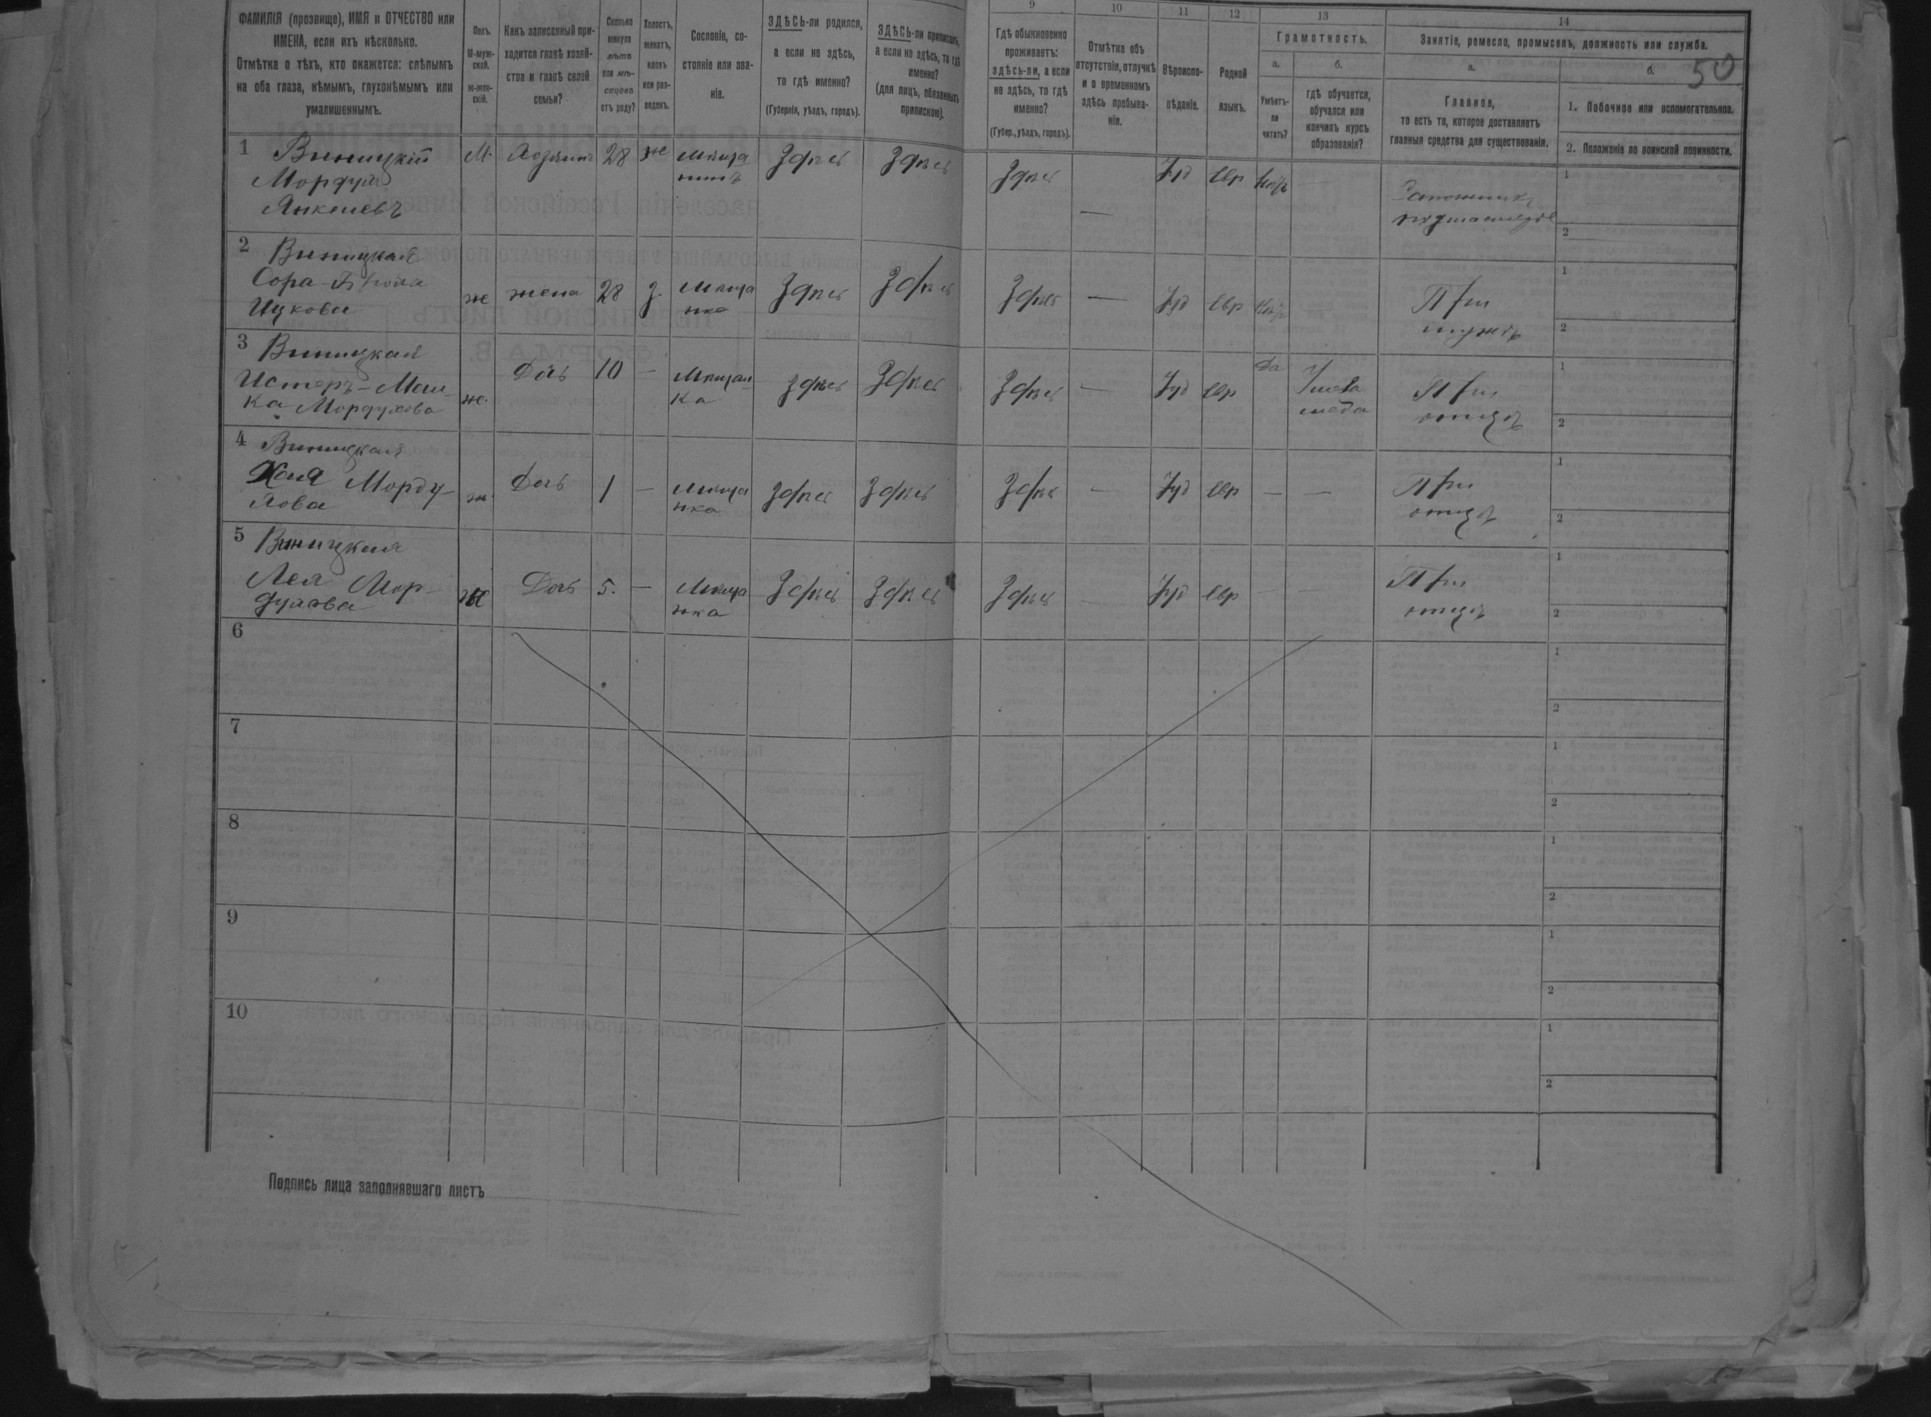 ФАМИЛІЯ (прозвище), ИМЯ и ОТЧЕСТВО или
ИМЕНА, если ихъ нѣсколько.
Отмѣтка о тѣхъ, кто окажется: слѣпымъ
на оба глаза, нѣмымъ, глухонѣмымъ или
умалишеннымъ.
Полъ.
М-муж-
ской.
ж-жен-
скій.
Какъ записанный при-
ходится главѣ хозяй-
ства и главѣ своей
семьи?
Сколько
минуло
лѣтъ
или мѣ-
сяцевъ
отъ роду?
Холостъ,
женатъ,
вдовъ
или раз-
веденъ.
Сословіе, со-
стояніе или зва-
ніе.
ЗДѢСЬ-ли родился,
а если не здѣсь,
то гдѣ именно?
(Губернія, уѣздъ, городъ).
ЗДѢСЬ-ли приписанъ,
а если не здѣсь, то гдѣ
именно?
(для лицъ, обязанныхъ
припиской).
9
Гдѣ обыкновенно
проживаетъ:
здѣсь-ли, а если
не здѣсь, то гдѣ
именно?
(Губер., уѣздъ, городъ).
10
Отмѣтка объ
отсутствіи, отлучкѣ
и о временномъ
здѣсь пребыва-
ніи.
11
Вѣроиспо-
вѣданіе.
12
Родной
языкъ.
13
Грамотность.
а.
Умѣетъ-
ли
читать?
б.
гдѣ обучается,
обучался или
кончилъ курсъ
образованія?
14
Занятіе, ремесло, промыселъ, должность или служба.
а.
Главное,
то есть то, которое доставляетъ
главныя средства для существованія.
б.
50
1. Побочное или вспомогательное.
2. Положеніе по воинской повинности.
1
Виницкій
Мордух
Янкелевъ
М. Хозяинъ 28 ж Мѣща
нинъ
Здѣсь Здѣсь Здѣсь — Іуд евр нѣтъ —
Сапожникъ
1
2
2
Виницкая
Сора
Ицкова
ж жена 28 з Мѣща
нка
Здѣсь Здѣсь Здѣсь — Іуд евр нѣтъ —
При
мужѣ
1
2
3
Виницкая
Истеръ-Мал-
ка Мордухова
ж. Дочь 10 — Мѣщан-
ка
Здѣсь Здѣсь Здѣсь — Іуд евр Да
При
отцѣ
1
2
4
Виницкая
Хая Морду-
хова
ж Дочь 1 — Мѣща
нка
Здѣсь Здѣсь Здѣсь — Іуд евр — —
При
отцѣ
1
2
5
Виницкая
Лея Мор-
духова
ж Дочь 5. — Мѣща
нка
Здѣсь Здѣсь Здѣсь — Іуд евр — —
При
отцѣ
1
2
6
1
2
7
1
2
8
1
2
9
1
2
10
1
2
Подпись лица заполнявшаго листъ